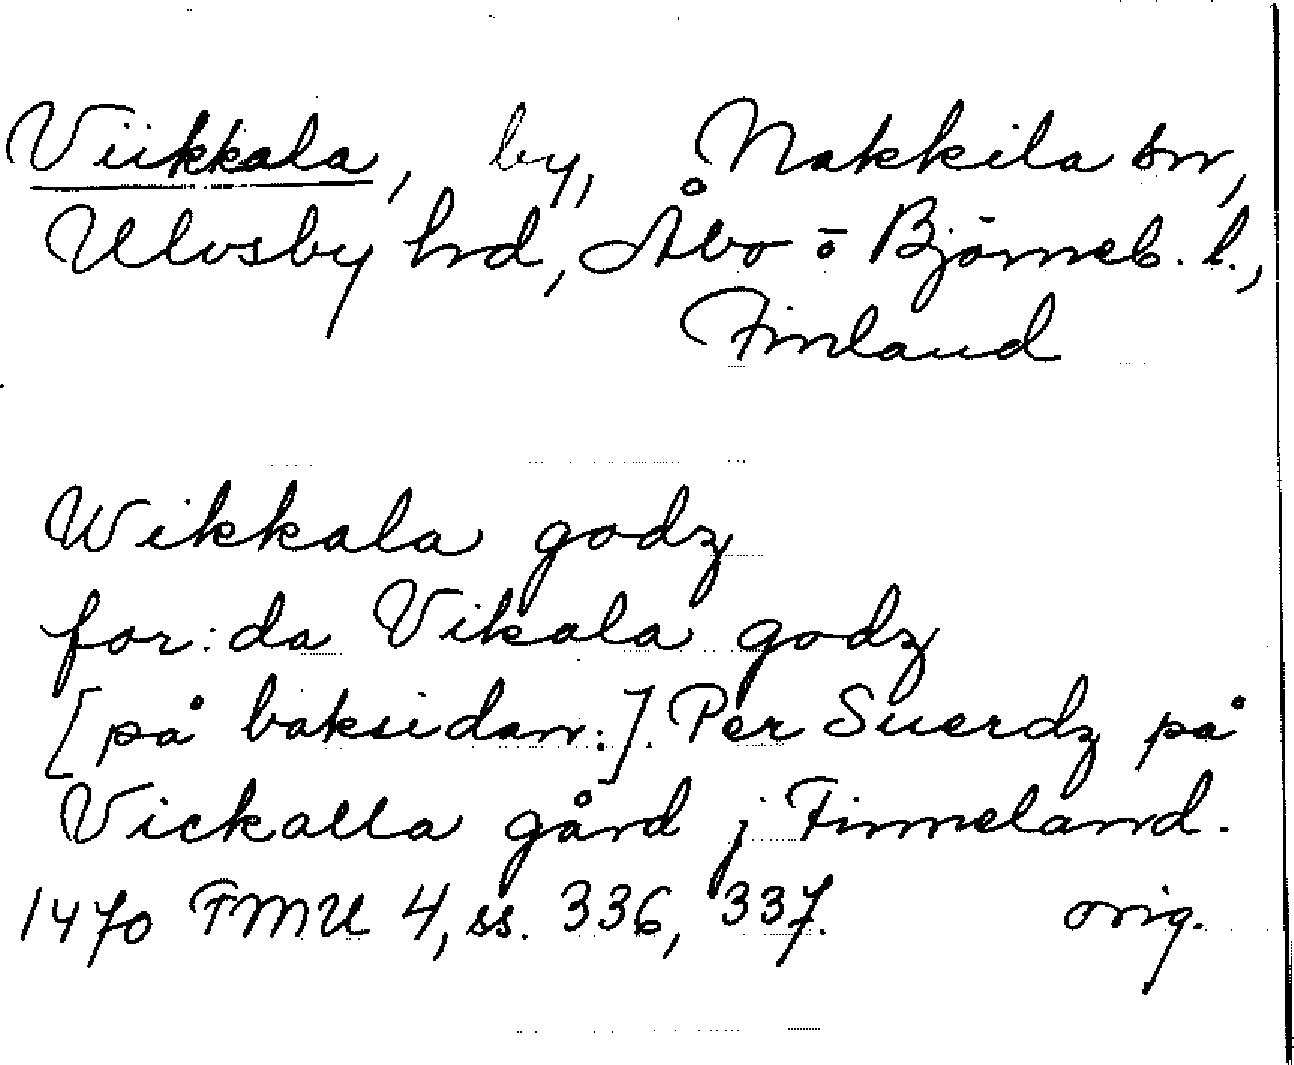 Viikkala, by, Nakkila sn,
Ulvsby hd, Åbo o Björneb. l.,
Finland
Wikkala godz
for:da Vikala godz
[på baksidan:]. Per Suerdz på
Vickalla gård j Finneland.
1470 FMU 4, ss. 336, 337. orig.